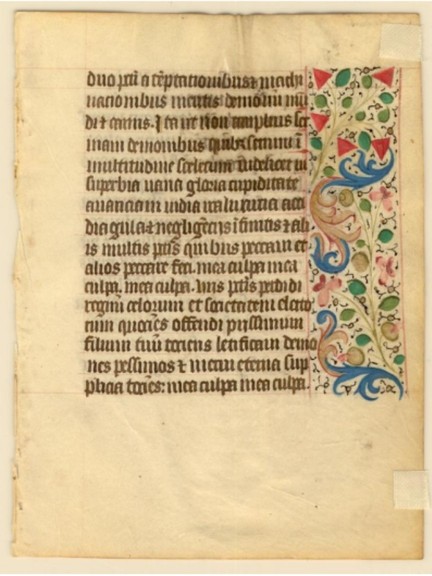 duo pctā a tēptationibus ⁊ machi
nationibus mentis demoniū mū
di ⁊ carnis. Et
inani demonibus
multitudine scelerum videlicet in
superbia uana gloria cupiditate
auaricia in uidia ira luxuria acci
dia gula ⁊ negligēcijs īfinitis ⁊ ali
is multis pctīs quibus peccaui et
alios peccare feci. mea culpa mea
culpa. mea culpa. pctīs perdidi
regnū celorum et societatem electo
rum quociēs offendi piissimum
filium tuū tociens letificaui demo
nes pessimos ⁊ merui eterna sup
plicia tociēs: mea culpa mea culpa.